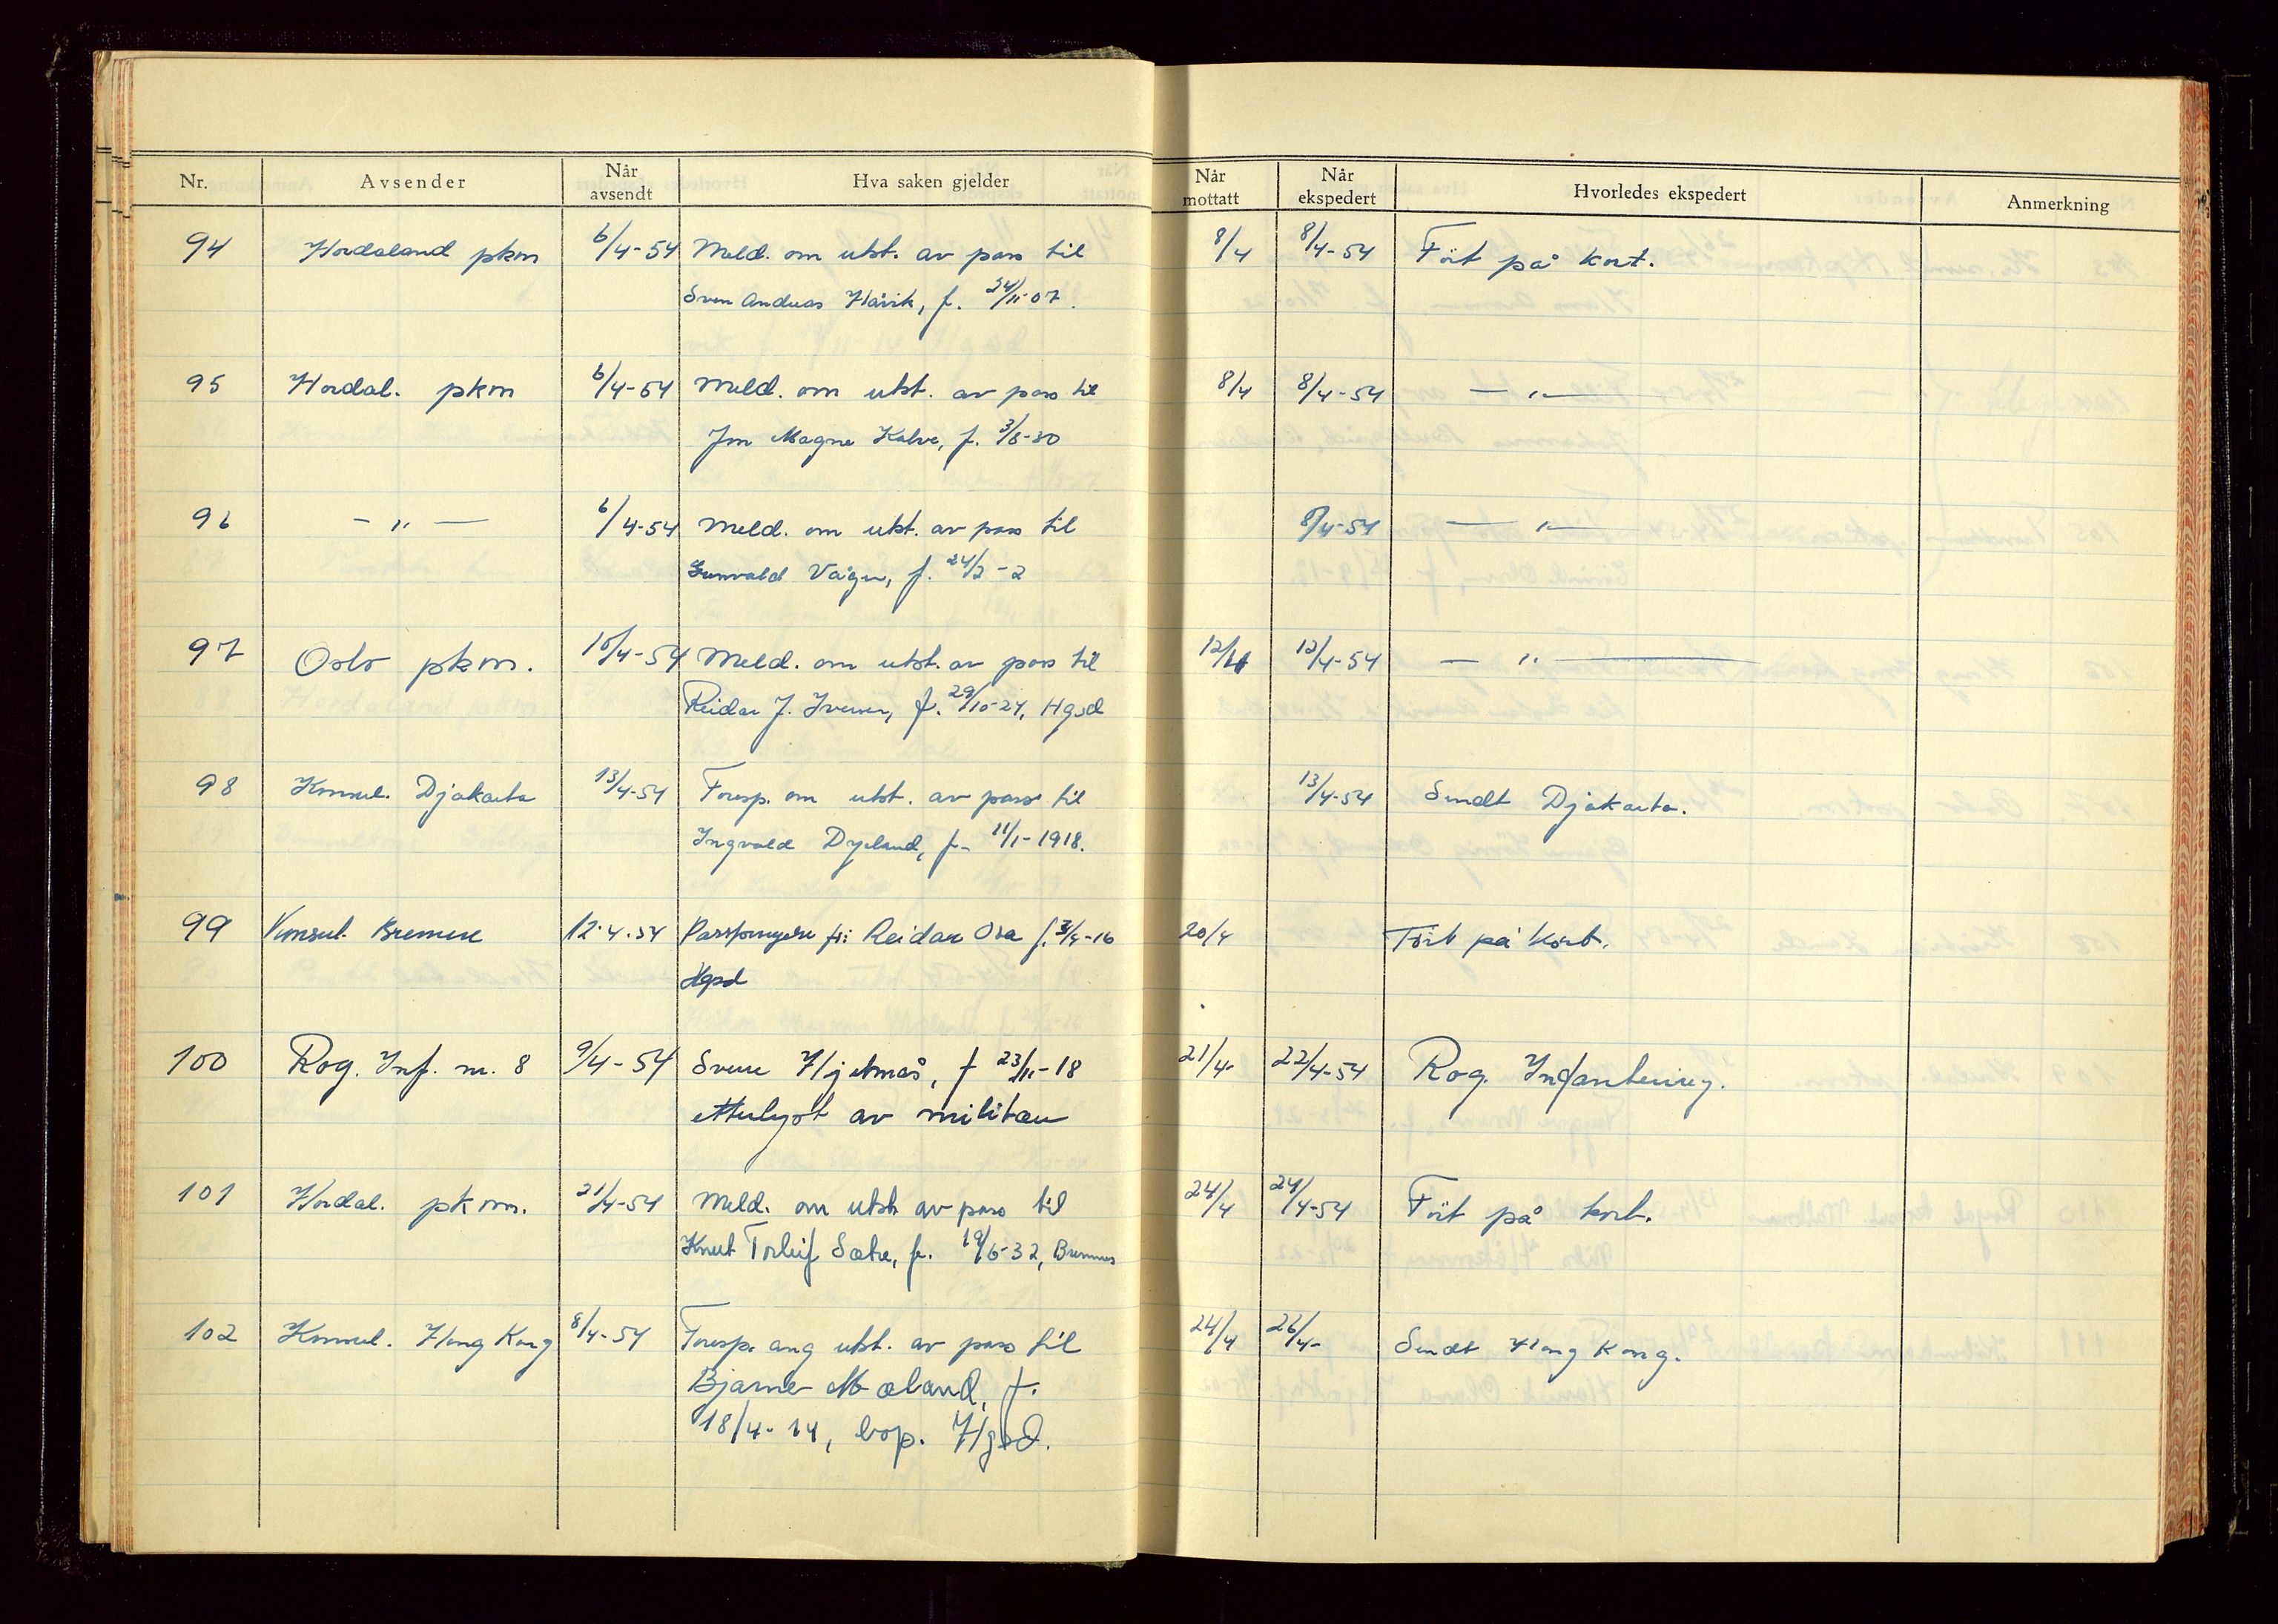 Nr. Avsender Når avsendt Hva saken gjelder Når mottatt Når ekspedert Hvorledes ekspedert Anmerkning
94 Hordaland pkm 6/4-54 Meld. om utst. av pass til 8/4 8/4-54 Ført på kort.
Sven Andreas Håvik, f. 24/11-07.
95 Hordal. pkm 6/4-54 Meld. om utst. av pass til 8/4 8/4-54 — " —
Jon Magne Kalve, f. 3/8-30
96 — " — 6/4-54 Meld. om utst. av pass til 8/4-54 — " —
Gunvald Våge, f. 24/2-2
97 Oslo pkm. 10/4-54 Meld. om utst. av pass til 12/4 12/4-54 — " —
Reidar J. Iversen, f. 29/10-24, Hgsd
98 Konsul. Djakarta 13/4-54 Foresp. om utst. av pass til 13/4-54 Sendt Djakarta.
Ingvald Dyeland, f. 11/1-1918.
99 Konsul. Bremen 12.4.54 Passfornyelse for Reidar Osa f. 3/4-16 20/4 Ført på kort.
Hgsd
100 Rog. Inf. nr. 8 9/4-54 Sverre Hjelmås, f 23/11-18 21/4- 22/4-54 Rog. Infanterireg.
etterlyst av militære
101 Hordal. pkm. 21/4-54 Meld. om utst av pass til 24/4 24/4-54 Ført på kort.
Knut Torleif Sætre, f. 19/6-32, Bremnes
102 Konsul. Hong Kong 8/4-54 Foresp. ang utst. av pass til 24/4 26/4- Sendt Hong Kong.
Bjarne Mæland, f.
18/4-14, bop. Hgsd.